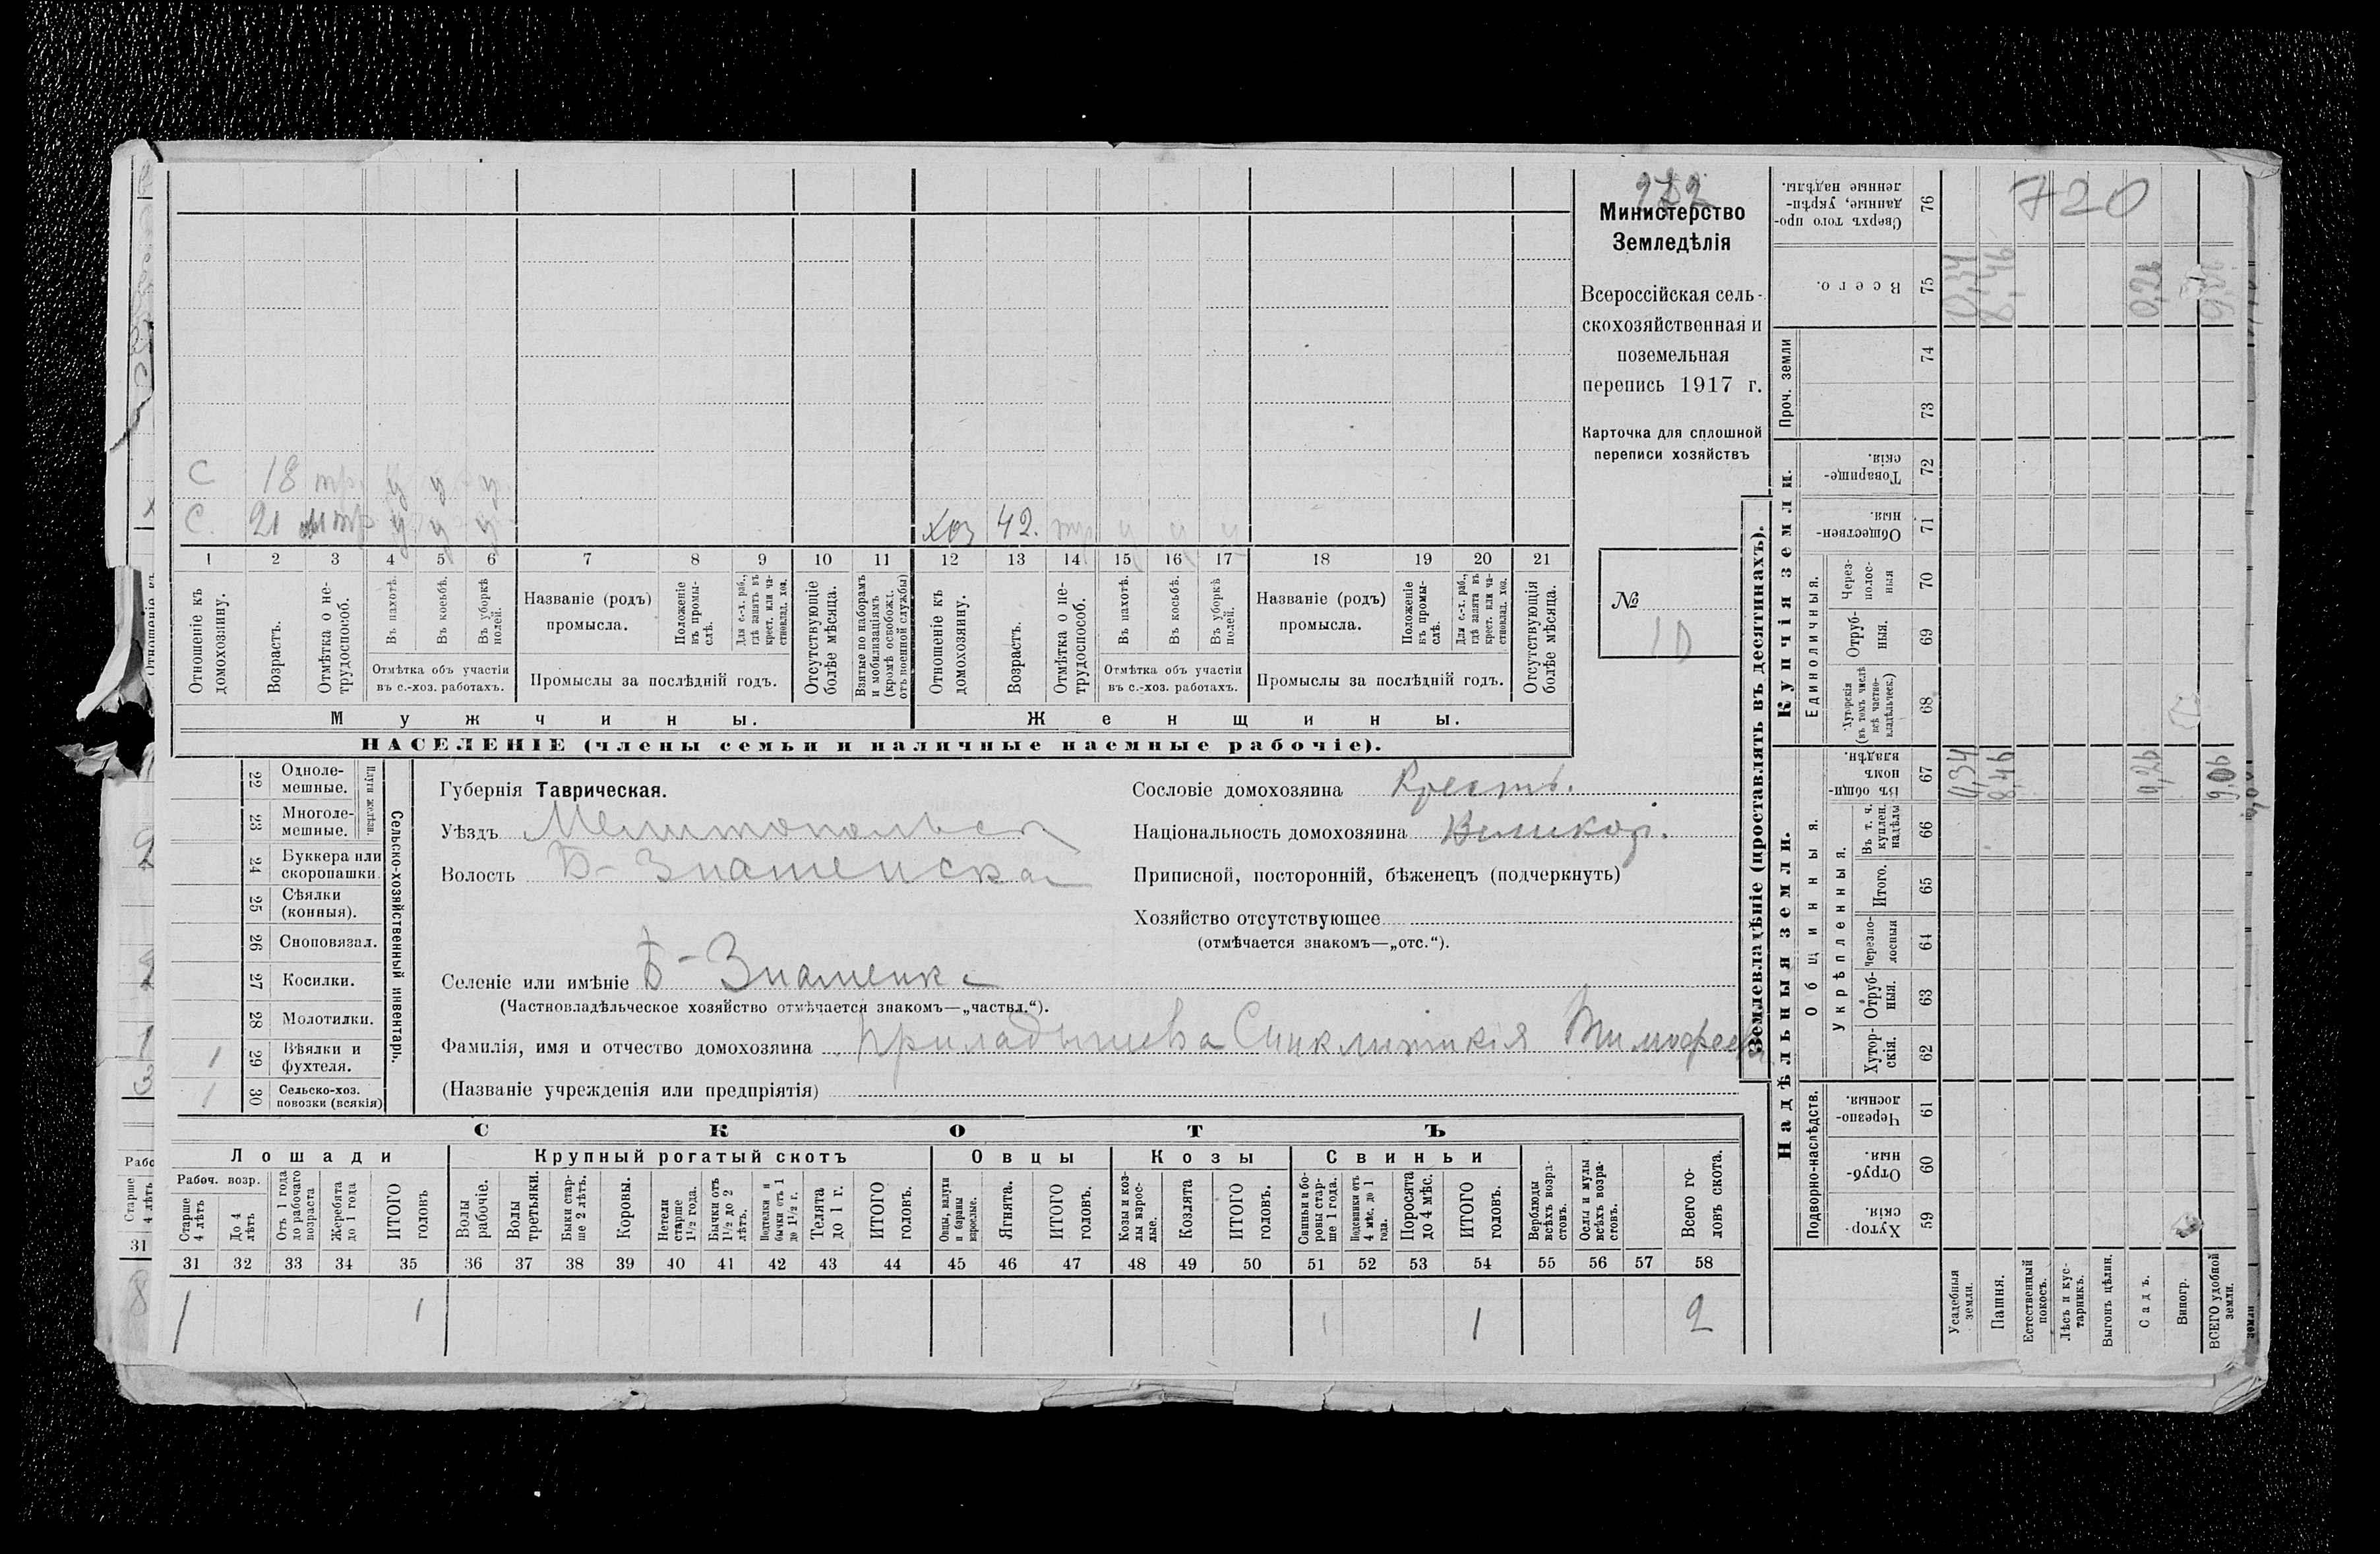 922
Министерство
Земледѣлія
Всероссійская сель-
скохозяйственная и
поземельная
перепись 1917 г.
Карточка для сплошной
переписи хозяйствъ
№
10
С 18 тр у у у
С. 21 тр у у у
хоз 42. тр ч ч ч
1 2 3 4 5 6 7 8 9 10 11 12 13 14 15 16 17 18 19 20 21
Отношеніе къ домохозяину.
Возрастъ.
Отмѣтка о не-
трудоспособ.
Въ пахотѣ.
Въ косьбѣ.
Въ уборкѣ
полей.
Отмѣтка объ участіи
въ с.-хоз. работахъ.
Названіе (родъ)
промысла.
Положеніе
въ промы-
слѣ.
Для с.-х. раб.,
гдѣ занятъ въ
крест. или ча-
стновлад. хоз.
Промыслы за послѣдній годъ.
Отсутствующіе
болѣе мѣсяца.
Взятые по наборамъ
и мобилизаціямъ
(кромѣ освобожд.
отъ военной службы)
Отношеніе къ
домохозяину.
Возрастъ.
Отмѣтка о не-
трудоспособ.
Въ пахотѣ.
Въ косьбѣ.
Въ уборкѣ
полей.
Отмѣтка объ участіи
въ с.-хоз. работахъ.
Названіе (родъ)
промысла.
Положеніе
въ промы-
слѣ.
Для с.-х. раб.,
гдѣ занята въ
крест. или ча-
стновлад. хоз.
Промыслы за послѣдній годъ.
Отсутствующія
болѣе мѣсяца.
Мужчины.
Женщины.
НАСЕЛЕНІЕ (члены семьи и наличные наемные рабочіе).
Сельско-хозяйственный инвентарь.
Плуги желѣзн.
22 Одноле-
мешные.
23 Многоле-
мешные.
24 Буккера или
скоропашки.
25 Сѣялки
(конныя).
26 Сноповязал.
27 Косилки.
28 Молотилки.
1 29 Вѣялки и
фухтеля.
1 30 Сельско-хоз.
повозки (всякія)
Губернія Таврическая.
Уѣздъ Мелитопольск
Волость Б-Знаменская
Сословіе домохозяина Крест.
Національность домохозяина Великор.
Приписной, посторонній, бѣженецъ (подчеркнуть)
Хозяйство отсутствующее
(отмѣчается знакомъ—„отс.“).
Селеніе или имѣніе Б-Знаменка
(Частновладѣльческое хозяйство отмѣчается знакомъ—„частвл.“).
Фамилія, имя и отчество домохозяина Приладышева Синклитикія Тимофеев
(Названіе учрежденія или предпріятія)
СКОТЪ
Лошади
Рабоч. возр.
Старше
4 лѣтъ
До 4
лѣтъ
Отъ 1 года
до рабочаго
возраста
Жеребята
до 1 года
ИТОГО
головъ
Крупный рогатый скотъ
Волы
рабочіе.
Волы
третьяки.
Быки стар-
ше 2 лѣтъ.
Коровы.
Нетели
старше
1½ года.
Бычки отъ
1½ до 2
лѣтъ.
Подтелки и
бычки отъ 1
до 1½ г.
Телята
до 1 г.
ИТОГО
головъ.
Овцы
Овцы, валухи
и бараны
взрослые.
Ягнята.
ИТОГО
головъ.
Козы
Козы и коз-
лы взрос-
лые.
Козлята
ИТОГО
головъ.
Свиньи
Свиньи и бо-
ровы стар-
ше 1 года.
Подсвинки отъ
4 мѣс. до 1
года.
Поросята
до 4 мѣс.
ИТОГО
головъ.
Верблюды
всѣхъ возра-
стовъ.
Ослы и мулы
всѣхъ возра-
стовъ.
Всего го-
ловъ скота.
31 32 33 34 35 36 37 38 39 40 41 42 43 44 45 46 47 48 49 50 51 52 53 54 55 56 57 58
1 1 1 1 2
Землевладѣніе (проставлять въ десятинахъ).
Надѣльныя земли.
Купчія земли.
Проч. земли
Подворно-наслѣдств.
Общинныя.
Укрѣпленныя.
Единоличныя.
Сверхъ того про-
данные, укрѣп-
ленные надѣлы. 76 720
Всего. 75 0,34 8,46 0,26 9,06
74
73
Товарище-
скія. 72
Обществен-
ныя. 71
Через-
полос-
ныя 70
Отруб-
ныя. 69
Хуторскія
(въ томъ числѣ
всѣ частно-
владѣльческ.) 68
Въ общин-
номъ
владѣн. 67 0,34 8,46 0,26 9,06
Въ т. ч.
куплен.
надѣлы 66
Итого. 65
Черезпо-
лосныя 64
Отруб-
ныя. 63
Хутор-
скія. 62
Черезпо-
лосныя. 61
Отруб-
ныя. 60
Хутор-
скія. 59
Усадебныя
земли.
Пашня.
Естественный
покосъ.
Лѣсъ и кус-
тарникъ.
Выгонъ цѣлин.
Садъ.
Виногр.
ВСЕГО удобной
земли.